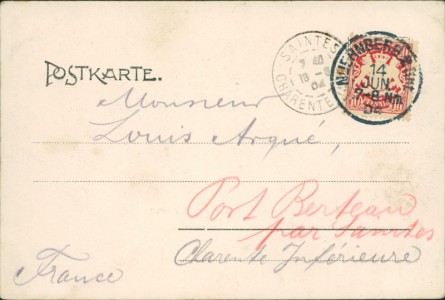 POSTKARTE.
SAINTES
CHARENTE
NUERNBERG
14
JUN.
7-8 Nm.
04
Monsieur
Louis Arqué,
Port Berteau
par Saintes
Clarente Inférieure
France